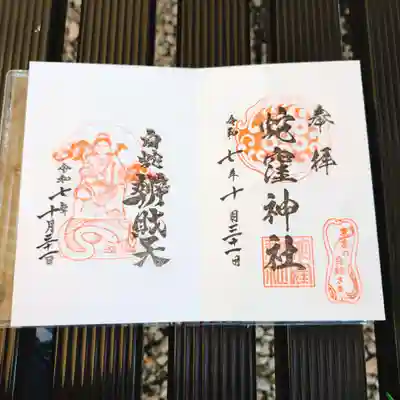 奉拝
蛇窪神社
令和七年十月三十一日
白蛇辨財天
令和七年十月三十一日